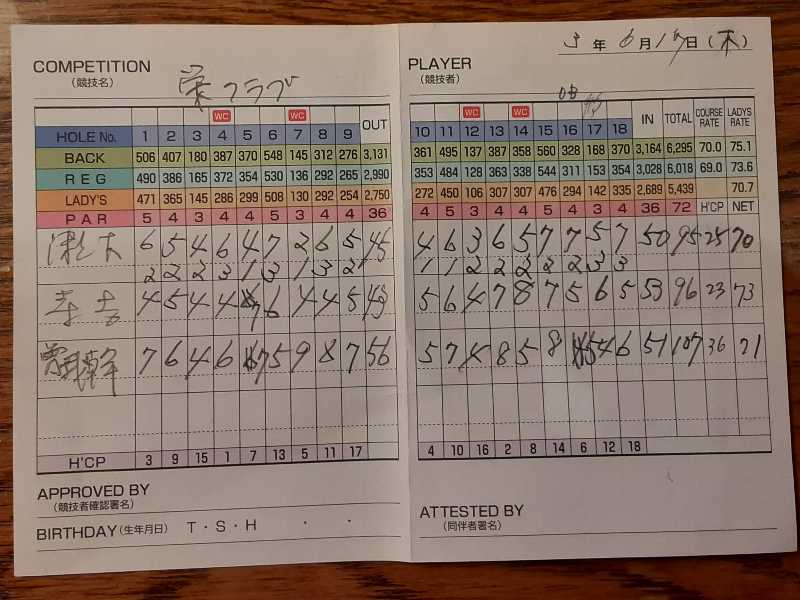 COMPETITION
(競技名)
栄クラブ
PLAYER
(競技者)
3年 6月 日(木)
OB
WC WC
HOLE No. 1 2 3 4 5 6 7 8 9 OUT
BACK 506 407 180 387 370 548 145 312 276 3,131
REG 490 386 165 372 354 530 136 292 265 2,990
LADY'S 471 365 145 286 299 508 130 292 254 2,750
PAR 5 4 3 4 4 5 3 4 4 36
6 5 4 6 4 7 2 6 5 45
2 2 2 3 1 3 1 3 2
4 5 4 4 7 6 4 4 5 43
7 6 4 6 7 5 9 8 7 56
H'CP 3 9 15 1 7 13 5 11 17
APPROVED BY
(競技者確認署名)
BIRTHDAY(生年月日) T・S・H ・ ・
WC WC
10 11 12 13 14 15 16 17 18 IN TOTAL COURSE RATE LADYS RATE
361 495 137 387 358 560 328 168 370 3,164 6,295 70.0 75.1
353 484 128 363 338 544 311 153 354 3,028 6,018 69.0 73.6
272 450 106 307 307 476 294 142 335 2,689 5,439 70.7
4 5 3 4 4 5 4 3 4 36 72 H'CP NET
4 6 3 6 5 7 7 5 7 50 95 25 70
1 1 2 2 2 2 2 3 3
5 6 4 7 8 7 5 6 5 53 96 23 73
5 7 4 8 5 8 4 6 51 107 36 71
4 10 16 2 8 14 6 12 18
ATTESTED BY
(同伴者署名)